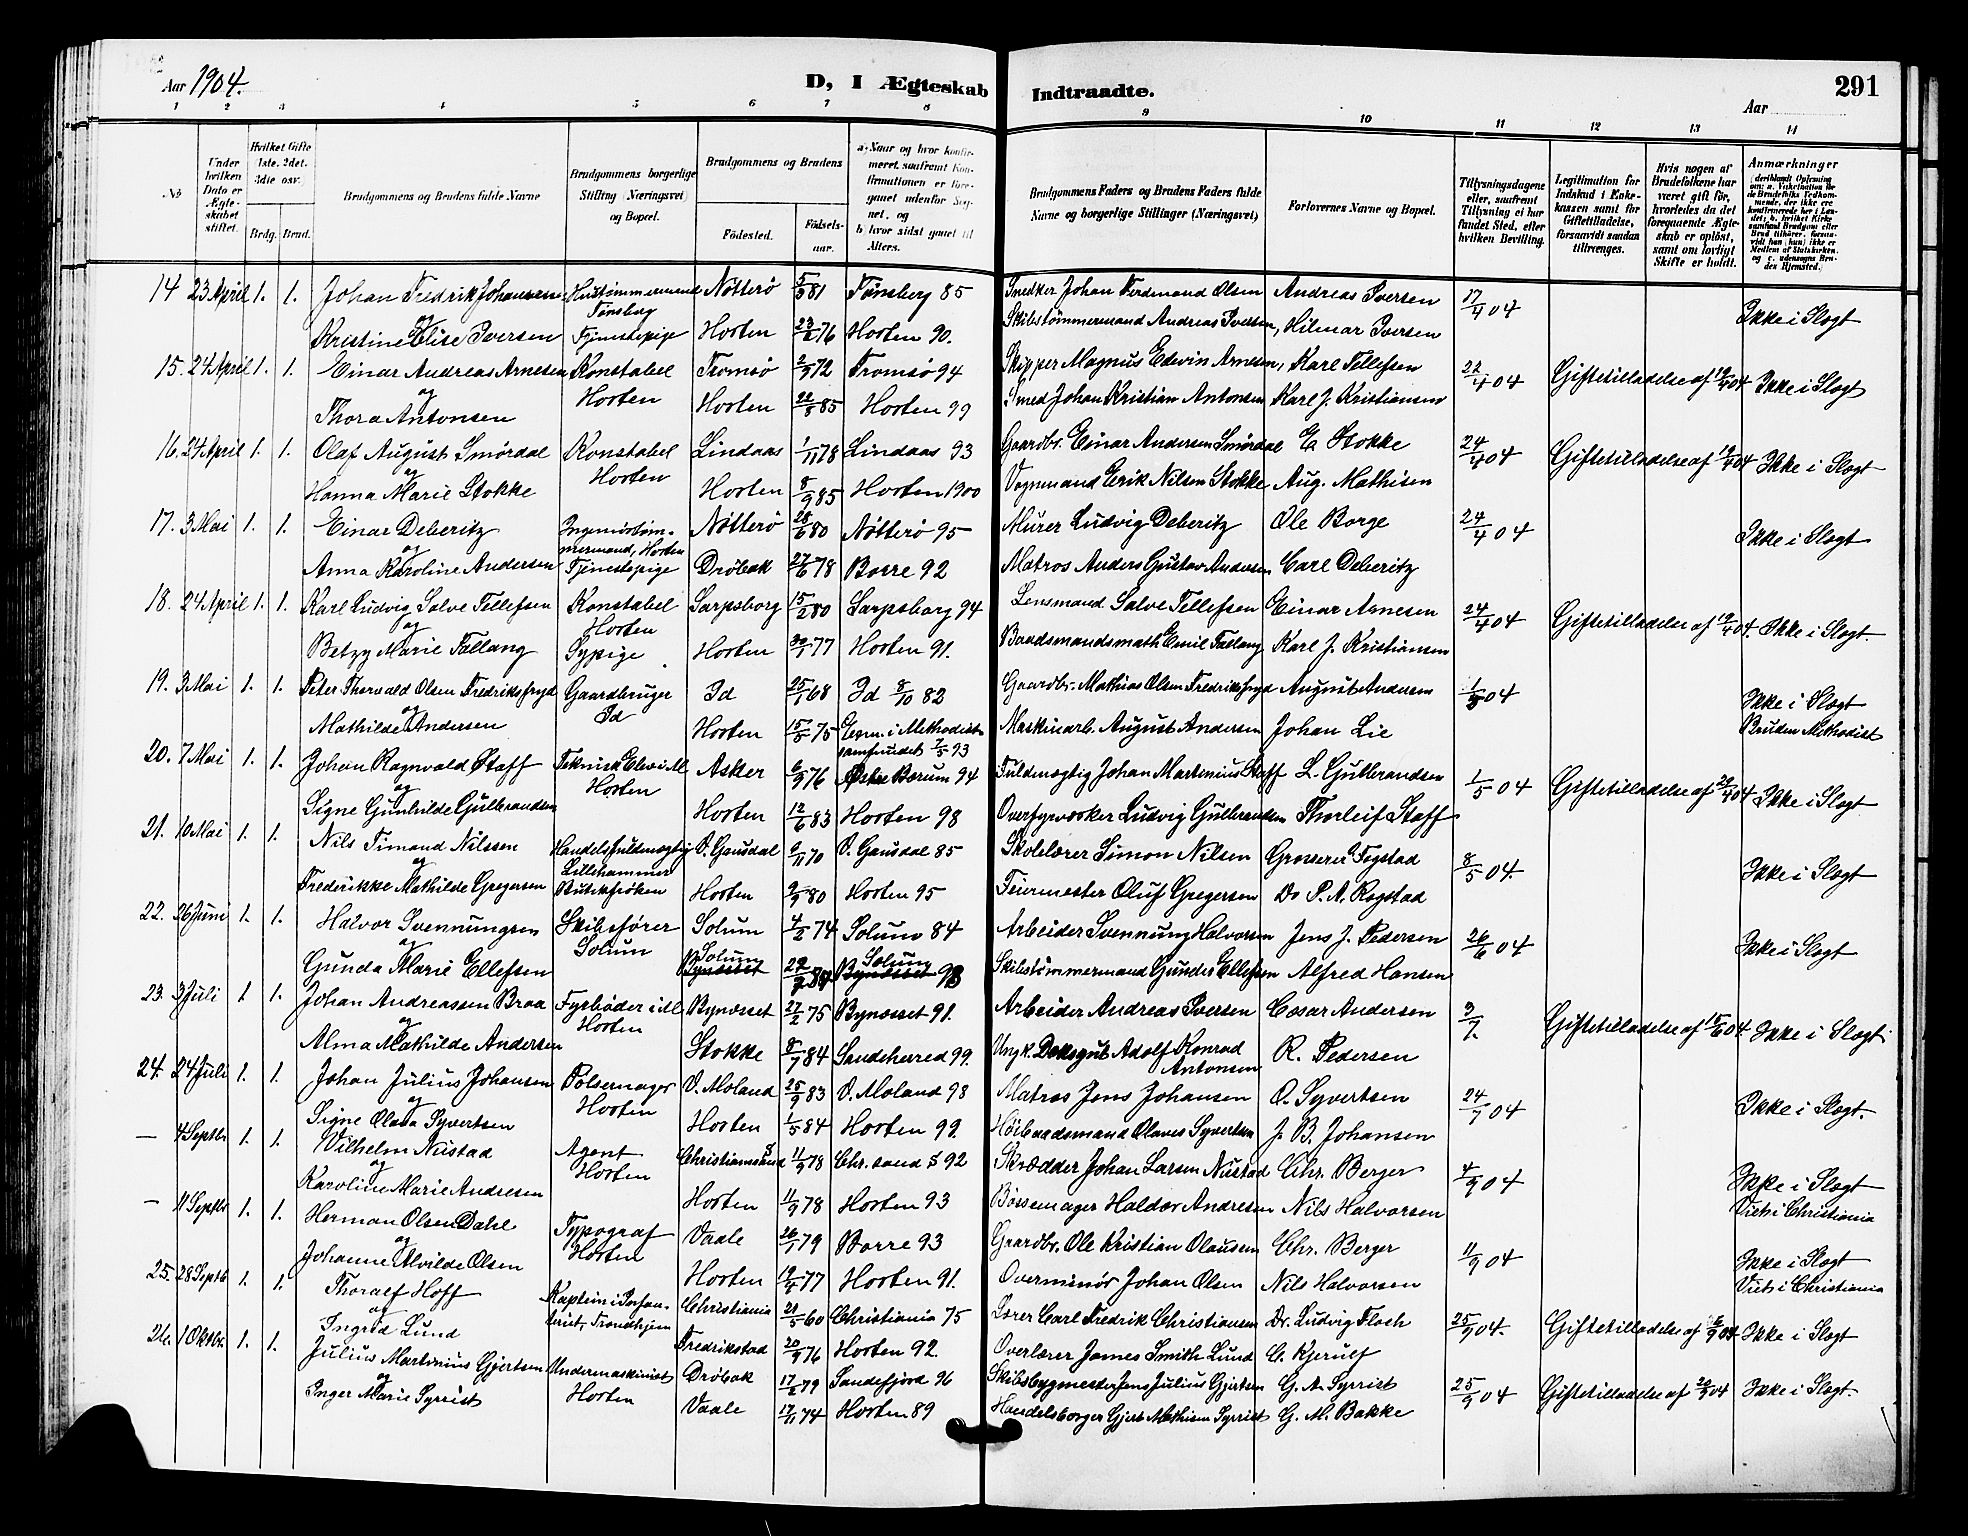 Aar 1904.
D, I Ægteskab Indtraadte.
291
Aar
1 2 3 4 5 6 7 8 9 10 11 12 13 14
No
Under hvilken Dato er Ægteskabet stiftet.
Hvilket Gifte (1ste. 2det. 3die osv.)
Brdg. Brud.
Brudgommens og Brudens fulde Navne
Brudgommens borgerlige Stilling (Næringsvei) og Bopæl.
Brudgommens og Brudens
Fødested.
Fødselsaar.
a) Naar og hvor konfirmeret, saafremt Konfirmationen er foregaaet udenfor Sognet, og
b) hvor sidst gaaet til Alters.
Brudgommens Faders og Brudens Faders fulde Navne og borgerlige Stillinger (Næringsvei)
Forlovernes Navne og Bopæl.
Tillysningsdagene eller, saafremt Tillysning ei har fundet Sted, efter hvilken Bevilling.
Legitimation for Indskud i Enkekassen samt for Giftetilladelse, forsaavidt saadan tiltrænges.
Hvis nogen af Brudefolkene har været gift før, hvorledes da det foregaaende Ægteskab er opløst, samt om lovligt Skifte er holdt.
Anmærkninger
14 23 April 1. 1. Johan Fredrik Johansen Hustømmermand Tønsberg Nøtterø 5/9 81 Tønsberg 85 Smedker Johan Ferdinand Olsen Andreas Iversen 17/4 04 Ikke i Slægt
og Kristine Elise Iversen Tjenestepige Horten 23/2 76 Horten 90. Skibstømmermand Andreas Iversen, Hilmar Iversen
15. 24 April 1. 1. Einar Andreas Arnesen Konstabel Horten Tromsø 2/9 72 Tromsø 94 Skipper Magnus Edwin Arnesen, Karl Tellefsen 22/4 04 Giftetilladelse af 19/4 04 Ikke i Slægt
og Thora Antonsen Horten 22/8 85 Horten 99 Smed Johan Kristian Antonsen Karl J. Kristiansen
16. 24 April 1. 1. Olaf August Smørdal Konstabel Horten Lindaas 1/11 78 Lindaas 93 Gaardbr. Einar Andersen Smørdal E. Stokke 24/4 04 Giftetilladelse af 19/4 04 Ikke i Slægt
og Hanna Marie Stokke Horten 8/9 85 Horten 1900 Vognmand Erik Nilsen Stokke Aug. Mathisen
17. 3 Mai 1. 1. Einar Deberitz Ingeniørtømmermand, Horten Nøtterø 28/6 80 Nøtterø 95 Murer Ludvig Deberitz Ole Borge 24/4 04 Ikke i Slægt
og Anna Karoline Andersen Tjenestepige Drøbak 27/6 78 Borre 92 Matros Anders Gustav Andersen Carl Deberitz
18. 24 April 1. 1. Karl Ludvig Salve Tellefsen Konstabel Horten Sarpsborg 15/2 80 Sarpsborg 94 Lensmand Salve Tellefsen Einar Arnesen 24/4 04 Giftetilladelse af 19/4 04. Ikke i Slægt.
og Betzy Marie Fallang Sypige Horten 30/1 77 Horten 91. Baadsmandsmath Emil Fallang Karl J. Kristiansen
19. 3 Mai 1. 1. Peter Thorvald Olsen Fredriksfryd Gaardbruger Id Id 25/1 68 Id 8/10 82 Gaardbr. Mathias Olsen Fredriksfryd August Andersen 1/5 04 Ikke i Slægt
og Mathilde Andersen Horten 15/5 75 i Methodistsamfundet 7/5 93 Maskinarb. August Andersen Johan Lie Bruden Methodist
20. 7 Mai 1. 1. Johan Ragnvald Staff Teknisk Elev i M. Horten Asker 6/9 76 Østre Bærum 94 Fuldmægtig Johan Martinius Staff L. Gulbrandsen 1/5 04 Giftetilladelse af 29/4 04 Ikke i Slægt
og Signe Gunhilde Gulbrandsen Horten 12/6 83 Horten 98 Overfyrvoker Ludvig Gulbrandsen Thorleif Staff
21. 10 Mai 1. 1. Nils Timand Nilssen Handelsfuldmægtig Lillehammer V. Gausdal 9/11 70 V. Gausdal 85 Skolelærer Simon Nilsen Grosserer Fogstad 8/5 04. Ikke i Slægt
og Fredrikke Mathilde Gregersen Butikfrøken Horten 9/9 80 Horten 95 Feiermester Oluf Gregersen Do P. A. Rogstad
22. 26 Juni 1. 1. Halvor Svennungsen Skibsfører Solum Solum 4/2 74 Solum 84 Arbeider Svennung Halvorsen Jens J. Pedersen 26/6 04 Ikke i Slægt
og Gunda Marie Ellefsen Solum Bynæsset 22/ 84 Solum Bynæsset 98 Skibstømmermand Gunder Ellefsen Alfred Hansen
23. 3 Juli 1 1. Johan Andreassen Braa Fyrbøder i M. Horten Bynæsset 27/2 75 Bynæsset 91. Arbeider Andreas Iversen Cæsar Andersen 3/7. Giftetilladelse af 15/6 04 Ikke i Slægt
og Alma Mathilde Andersen Stokke 8/7 84 Sandeherred 99. Ungk. Doksgut Adolf Konrad Antonsen R. Pedersen
24. 24 Juli 1. 1. Johan Julius Johansen Pølsemager Horten V. Moland 25/9 83 V. Moland 98 Matros Jens Johansen O. Syvertsen 24/7 04 Ikke i Slægt.
og Signe Olava Syvertsen Horten 1/5 84 Horten 99. Høibaadsmand Olaves Syvertsen J. B. Johansen
— 4 Septbr 1. 1. Vilhelm Nustad Agent Horten Christianssand 11/9 78 Chr. sand S 92 Skrædder Johan Larsen Nustad Chr. Berger 4/9 04 Ikke i Slægt
og Karoline Marie Andresen Horten 11/9 78 Horten 93 Bøssemager Haldor Andresen Nils Halvorsen Viet i Christiania
— 11 Septbr 1. 1. Herman Olsen Dahl Typograf Horten Vaale 26/1 79 Borre 93 Gaardbr. Ole Kristian Olausen Chr. Berger 11/9 04 Ikke i Slægt
og Johanne Alvilde Olsen Horten 19/4 77 Horten 91. Overminør Johan Olsen Nils Halvorsen Viet i Christiania
25. 28 Septb 1. 1. Thoralf Hoff Kaptein i Infanteriet, Trondhjem Christiania 21/5 60 Christiania 75 Lærer Carl Fredrik Christiansen Dr. Ludvig Floch 25/9 04. Giftetilladelse af 16/9 04 Ikke i Slægt
og Ingrid Lund Fredrikstad 20/9 76 Horten 92. Overlærer James Smith Lund C. Kjerulf
26. 1 Oktbr. 1. 1. Julius Martinius Gjertsen Undermaskinist Horten Drøbak 17/2 79 Sandefjord 96 Skibsbygmester Jens Julius Gjertsen G. A. Syrrist 25/9 04 Giftetilladelse af 20/9 04 Ikke i Slægt.
og Inger Marie Syrrist Vaale 17/11 74 Horten 89 Handelsborger Gjert Mathisen Syrrist G. M. Bakke